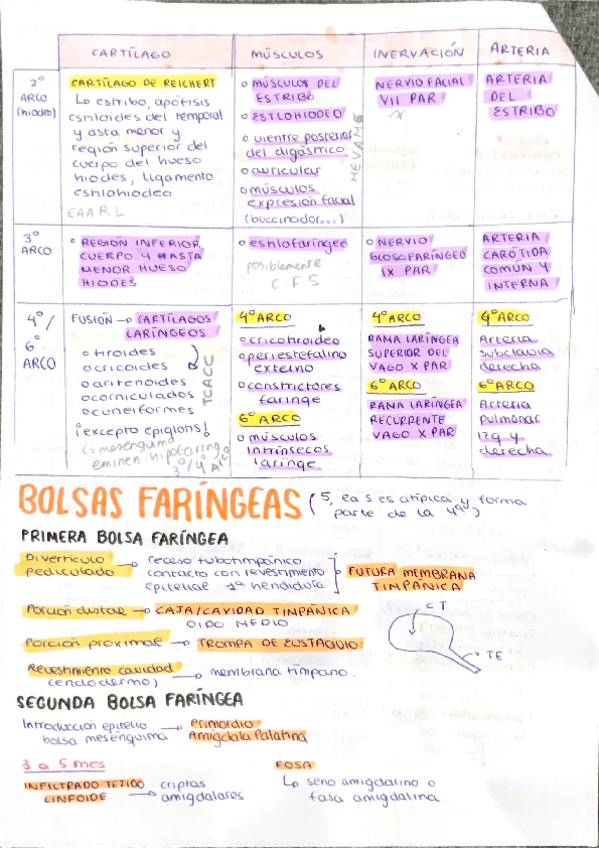 CARTÍLAGO
MÚSCULOS
INERVACIÓN
ARTERIA
2º
ARCO
(hiodeo)
CARTÍLAGO DE REICHERT
Lo estribo, apófisis
estiloides del temporal
y asta menor y
región superior del
cuerpo del hueso
hiodes, ligamento
estilohiodeo
EAARL
o MÚSCULOS DEL
ESTRIBO
o ESTLOHIODEO
o vientre posterior
del digástrico
o auricular
o músculos
expresión facial
(buccinador...)
MEVAME
NERVIO FACIAL
VII PAR
X
ARTERIA
DEL
ESTRIBO
3º
ARCO
• REGIÓN INFERIOR
CUERPO Y HASTA
MENOR HUESO
HIODES
o estilofaríngeo
posiblemente
C.F.S
o NERVIO
GLOSOFARÍNGEO
IX PAR
ARTERIA
CARÓTIDA
COMÚN Y
INTERNA
4º/
6º
ARCO
FUSIÓN → CARTÍLAGOS
LARÍNGEOS
o tiroides
o cricoides
o aritenoides
o corniculados
o cuneiformes
TCACC
¡excepto epiglotis!
mesénquima
eminen. hipofaríng.
3º/4º ARCO
4º ARCO
o cricotiroideo
o periestafalino
externo
o constrictores
faringe
6º ARCO
o músculos
intrínsecos
laringe
4º ARCO
RAMA LARÍNGEA
SUPERIOR DEL
VAGO X PAR
6º ARCO
RAMA LARÍNGEA
RECURRENTE
VAGO X PAR
4º ARCO
Arteria
subclavia
derecha
6º ARCO
Arteria
pulmonar
izq y
derecha
BOLSAS FARÍNGEAS (5, la 5 es atípica y forma
parte de la 4ª)
PRIMERA BOLSA FARÍNGEA
Divertículo
pediculado
→ receso tubotimpánico
contacto con revestimiento
epitelial 1ª hendidura
FUTURA MEMBRANA
TIMPÁNICA
Porción distal → CAJA/CAVIDAD TIMPÁNICA
OIDO MEDIO
CT
Porción proximal → TROMPA DE EUSTAQUIO
TE
Revestimiento cavidad
(endodermo)
→ membrana tímpano.
SEGUNDA BOLSA FARÍNGEA
Introducción epitelio
bolsa mesénquima
→ Primordio
Amígdala Palatina
3 a 5 mes
INFILTRADO TEJIDO
LINFOIDE
→ criptas
amigdalares
FOSA
↳ seno amigdalino o
fosa amigdalina